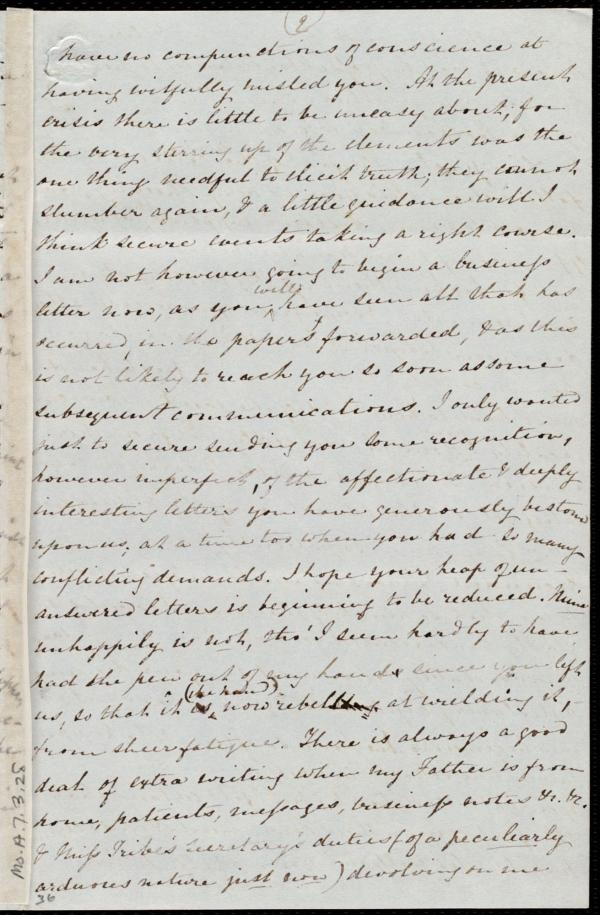 (9)
have no compunctions of conscience at
having wilfully misled you. At the present
crisis there is little to be uneasy about, for
the very stirring up of the elements was the
one thing needful to elicit truth; they cannot
slumber again, & a little guidance will I
think secure events taking a right course.
I am not however going to begin a business
letter now, as you will have seen all that has
occurred, in the papers forwarded, & as this
is not likely to reach you so soon as some
subsequent communications. I only wanted
just to secure sending you some recognition,
however imperfect, of the affectionate & deeply
interesting letters you have generously bestowed
upon us, at a time too when you had so many
conflicting demands. I hope your heap of un-
answered letters is beginning to be reduced. Mine
unhappily is not, tho' I seem hardly to have
had the pen out of my hands since you left
us, so that it (the hand) is now rebels at wielding it,-
from sheer fatigue. There is always a good
deal of extra writing when my Father is from
home, patients, messages, business notes &c. &c.
& Miss Tribe's Secretary's duties (of a peculiarly
arduous nature just now) devolving on me
Ms.A.7.3.28
36